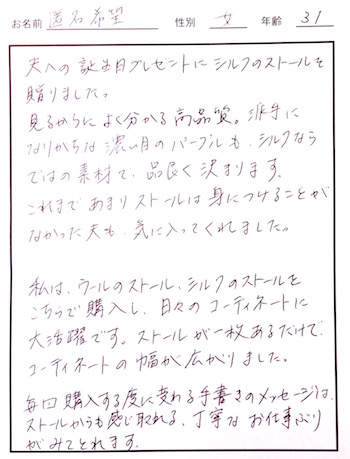 お名前 匿名希望 性別 女 年齢 31
夫への誕生日プレゼントにシルクのストールを
贈りました。
見るからによく分かる高品質。派手に
なりがちな濃い目のパープルも、シルクなら
ではの素材で、品良く決まります。
これまであまりストールは身につけることが
なかった夫も、気に入ってくれました。
私は、ウールのストール、シルクのストールを
こちらで購入し、日々のコーディネートに
大活躍です。ストールが一枚あるだけで
コーディネートの幅が広がりました。
毎回購入する度に変わる手書きのメッセージは、
ストールからも感じ取れる、丁寧なお仕事ぶり
がみてとれます。